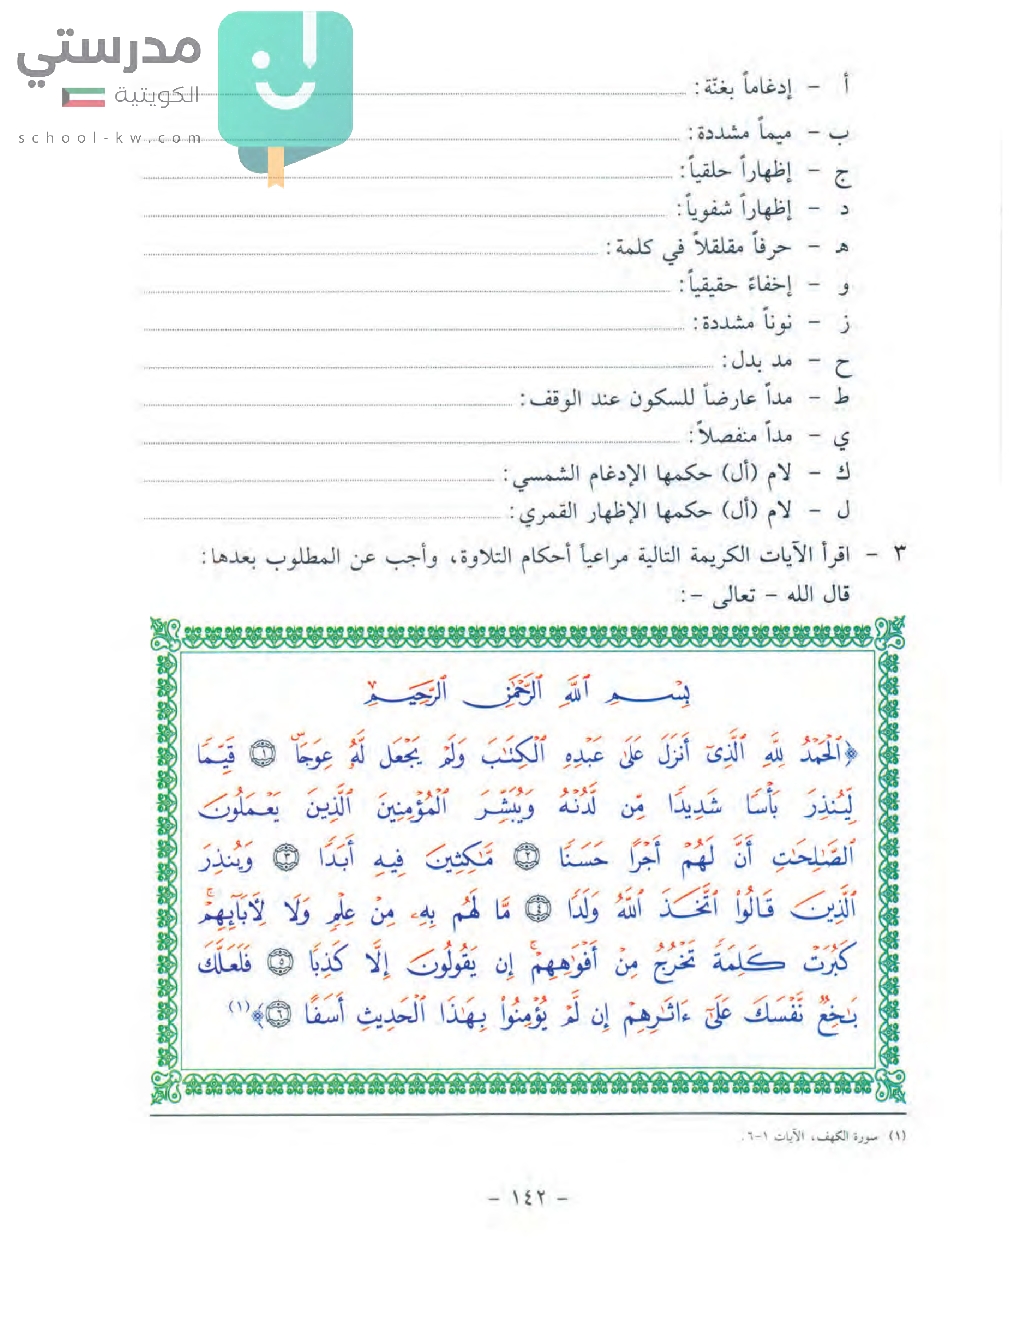 مدرستي
الكويتية
school-kw.com
أ - إدغاماً بغنّة :
ب - ميماً مشددة :
ج - إظهاراً حلقياً :
د - إظهاراً شفوياً :
هـ - حرفاً مقلقلاً في كلمة :
و - إخفاءً حقيقياً :
ز - نوناً مشددة :
ح - مد بدل :
ط - مداً عارضاً للسكون عند الوقف :
ي - مداً منفصلاً :
ك - لام (أل) حكمها الإدغام الشمسي :
ل - لام (أل) حكمها الإظهار القمري :
٣ - اقرأ الآيات الكريمة التالية مراعياً أحكام التلاوة، وأجب عن المطلوب بعدها :
قال الله - تعالى - :
بِسْمِ ٱللَّهِ ٱلرَّحْمَٰنِ ٱلرَّحِيمِ
﴿ٱلْحَمْدُ لِلَّهِ ٱلَّذِىٓ أَنزَلَ عَلَىٰ عَبْدِهِ ٱلْكِتَٰبَ وَلَمْ يَجْعَل لَّهُۥ عِوَجَاۜ ١ قَيِّمًا
لِّيُنذِرَ بَأْسًا شَدِيدًا مِّن لَّدُنْهُ وَيُبَشِّرَ ٱلْمُؤْمِنِينَ ٱلَّذِينَ يَعْمَلُونَ
ٱلصَّٰلِحَٰتِ أَنَّ لَهُمْ أَجْرًا حَسَنًا ٢ مَّٰكِثِينَ فِيهِ أَبَدًا ٣ وَيُنذِرَ
ٱلَّذِينَ قَالُوا۟ ٱتَّخَذَ ٱللَّهُ وَلَدًا ٤ مَّا لَهُم بِهِۦ مِنْ عِلْمٍ وَلَا لِءَابَآئِهِمْۚ
كَبُرَتْ كَلِمَةً تَخْرُجُ مِنْ أَفْوَٰهِهِمْۚ إِن يَقُولُونَ إِلَّا كَذِبًا ٥ فَلَعَلَّكَ
بَٰخِعٌ نَّفْسَكَ عَلَىٰٓ ءَاثَٰرِهِمْ إِن لَّمْ يُؤْمِنُوا۟ بِهَٰذَا ٱلْحَدِيثِ أَسَفًا ٦﴾(١)
(١) سورة الكهف، الآيات ١-٦.
- ١٤٢ -